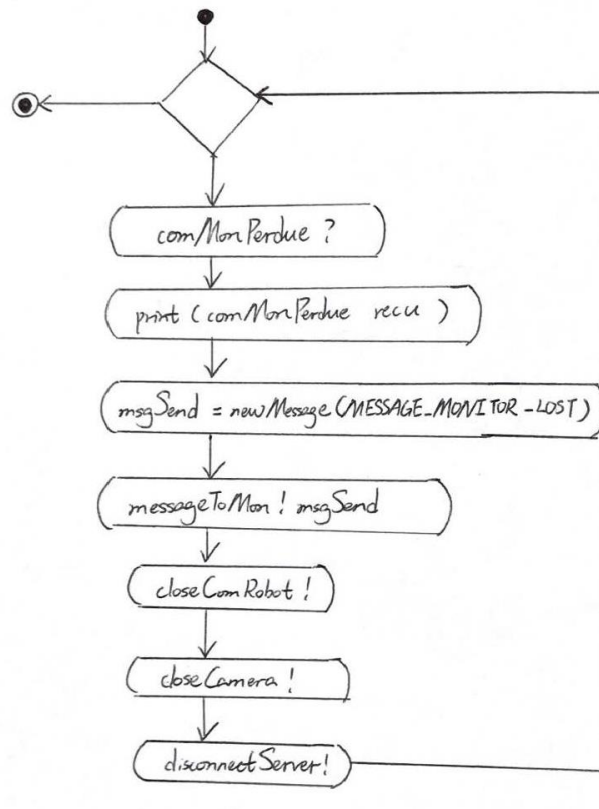 comMonPerdue ?
print (comMonPerdue recu )
msgSend = newMessage (MESSAGE_MONITOR-LOST)
messageToMon ! msgSend
closeComRobot !
closeCamera !
disconnectServer!